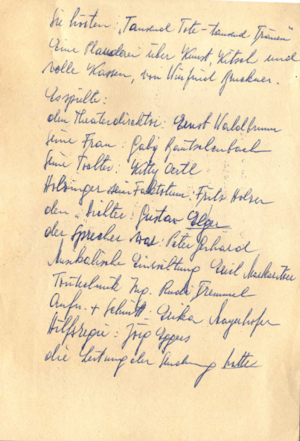 Sie hörten: „Tausend Tote - tausend Tränen"
Eine Plauderei über Kunst, Kitsch und
volle Kassen, von Winfried Bruckner.
Es spielte:
den Theaterdirektor: Ernst Waldbrunn
seine Frau: Gaby Bautschenbach
seine Tochter: Kitty Oertl
Holzinger sein Faktotum: Fritz Holzer
den „Dichter: Gustav Elger
der Sprecher war: Peter Gerhard
Musikalische Einrichtung Emil
Tontechnik Ing. Rudi Gremmel
Aufn. + Schnitt: Erika Mayerhofer
Hilfsregie: Jörg Eggers
die Leitung der Sendung hatte